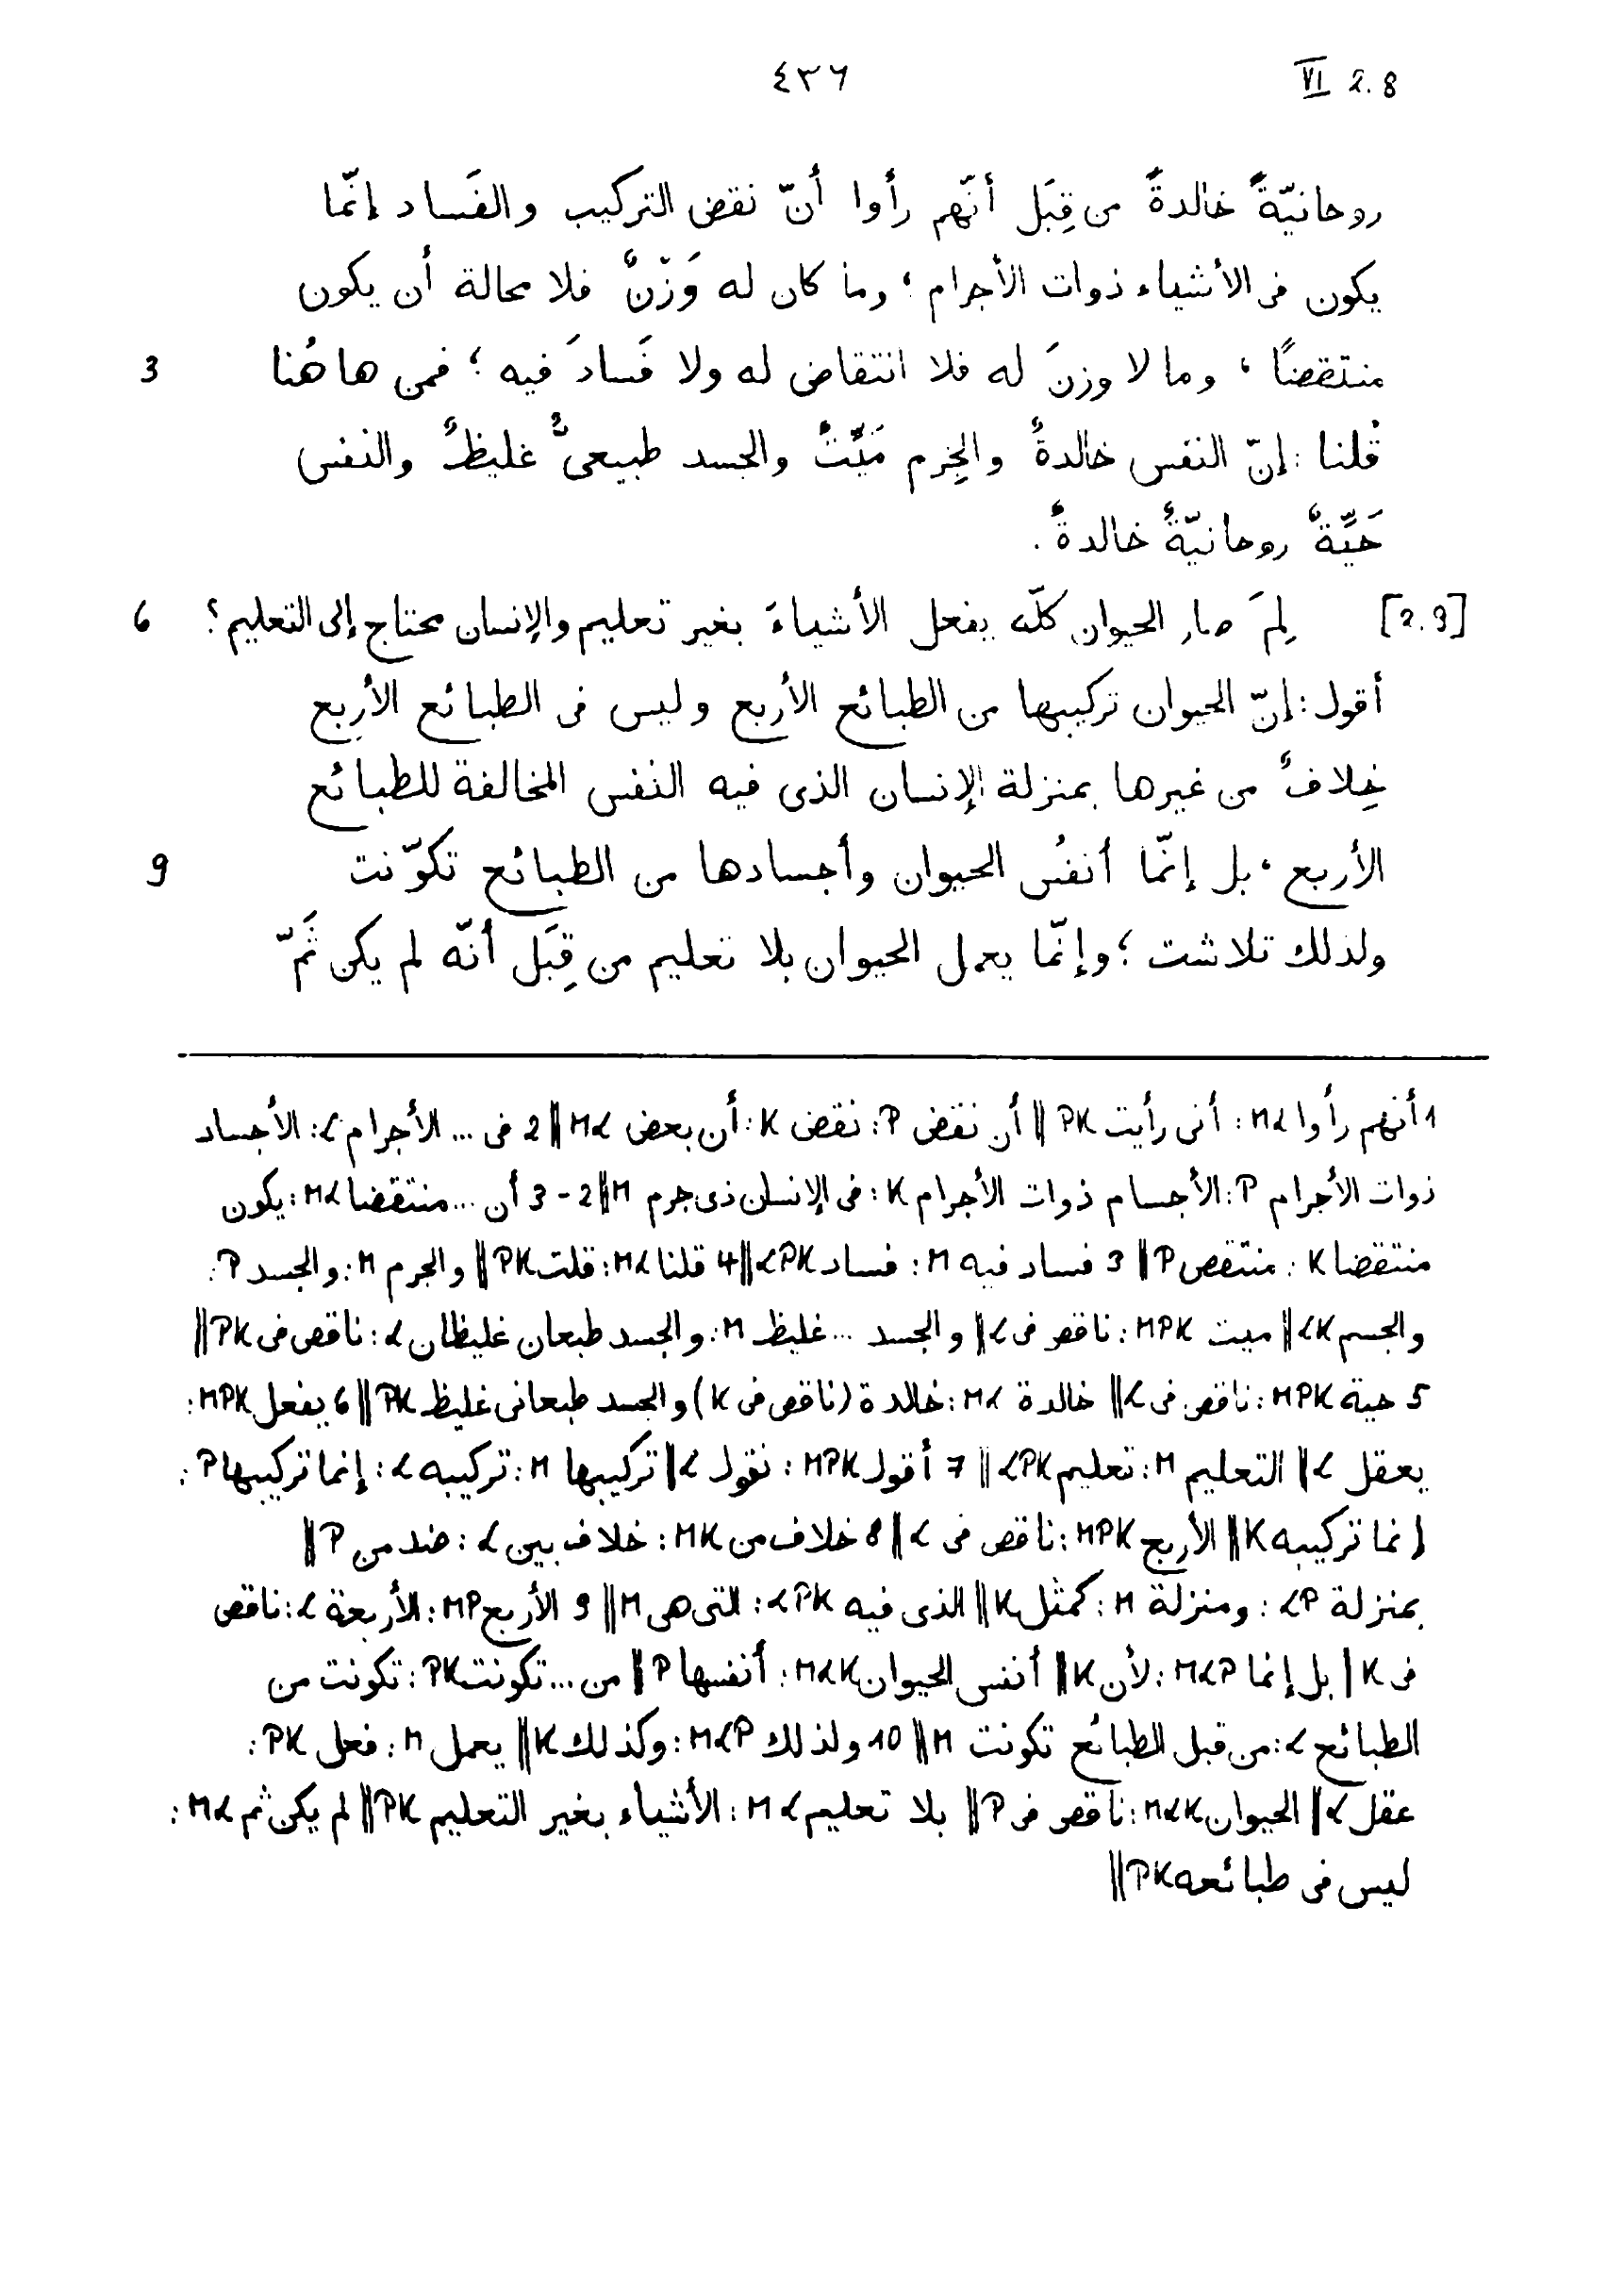 VI 2.8
٤٣٦
روحانيّةً خالدةً من قِبَل أنّهم رأوا أنّ نقض التركيب والفَساد إنّما
يكون فى الأشياء ذوات الأجرام ؛ وما كان له وَزْنٌ فلا محالة أن يكون
منتقضًا ، وما لا وزنَ له فلا انتقاض له ولا فَسادَ فيه ؛ فمن هاهُنا 3
قُلنا : إنّ النفس خالدةٌ والجِرم مَيِّتٌ والجسد طبيعىٌّ غليظٌ والنفس
حَيَّةٌ روحانيّةٌ خالدةٌ .
[2.9] لِمَ صار الحيوان كلّه يفعل الأشياءَ بغير تعليم والإنسان محتاج إلى التعليم ؟ 6
أقول : إنّ الحيوان تركيبها من الطبائع الأربع وليس فى الطبائع الأربع
خِلافٌ من غيرها بمنزلة الإنسان الذى فيه النفس المخالفة للطبائع
الأربع ، بل إنّما أنفُس الحيوان وأجسادها من الطبائع تكوّنت 9
ولذلك تلاشت ؛ وإنّما يعمل الحيوان بلا تعليم من قِبَل أنّه لم يكن ثَمّ
1 أنهم رأوا M𝛼 : أنى رأيت PK || أن نقض P : نقض K : أن بعض M𝛼 || 2 فى ... الأجرام 𝛼 : الأجساد
ذوات الأجرام P : الأجسام ذوات الأجرام K : فى الإنسان ذى جرم M || 2 - 3 أن ... منتقضا M𝛼 : يكون
منتقضا K : منتقص P || 3 فساد فيه M : فساد 𝛼PK || 4 قلنا M𝛼 : قلت PK || والجرم M : والجسد P :
والجسم 𝛼K || ميت MPK : ناقص فى 𝛼 || والجسد ... غليظ M : والجسد طبعان غليظان 𝛼 : ناقص فى PK ||
5 حية MPK : ناقص فى 𝛼 || خالدة M𝛼 : خالدة (ناقص فى K) والجسد طبعانى غليظ PK || 6 يفعل MPK :
يعقل 𝛼 || التعليم M : تعليم 𝛼PK || 7 أقول MPK : نقول 𝛼 | تركيبها M : تركيبه 𝛼 : إنما تركيبها P :
إنما تركيبه K || الأربع MPK : ناقص فى 𝛼 || 8 خلاف من MK : خلاف بين 𝛼 : ضد من P ||
بمنزلة 𝛼P : ومنزلة M : كمثل K || الذى فيه 𝛼PK : التى هى M || 9 الأربع MP : الأربعة 𝛼 : ناقص
فى K | بل إنما M𝛼P : لأن K || أنفس الحيوان M𝛼K : أنفسها P || من ... تكونت PK : تكونت من
الطبائع 𝛼 : من قبل الطبائع تكونت M || 10 ولذلك M𝛼P : وكذلك K || يعمل M : فعل PK :
عقل 𝛼 || الحيوان M𝛼K : ناقص فى P || بلا تعليم M𝛼 : الأشياء بغير التعليم PK || لم يكن ثم M𝛼 :
ليس فى طبائعه PK ||